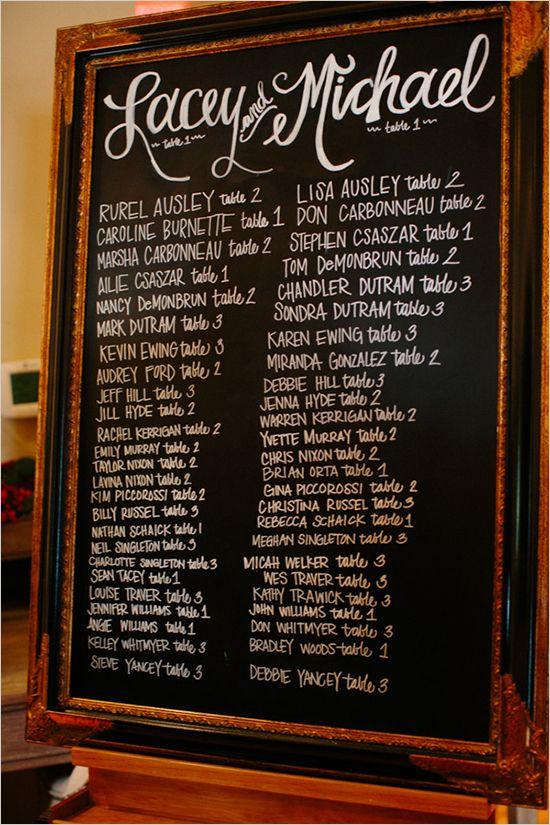 Lacey and Michael
~ table 1 ~
~ table 1 ~
RUREL AUSLEY table 2
CAROLINE BURNETTE table 1
MARSHA CARBONNEAU table 2
AILIE CSASZAR table 1
NANCY DeMONBRUN table 2
MARK DUTRAM table 3
KEVIN EWING table 3
AUDREY FORD table 2
JEFF HILL table 3
JILL HYDE table 2
RACHEL KERRIGAN table 2
EMILY MURRAY table 2
TAYLOR NIXON table 2
LAVINA NIXON table 2
KIM PICCOROSSI table 2
BILLY RUSSEL table 3
NATHAN SCHAICK table 1
NEIL SINGLETON table 3
CHARLOTTE SINGLETON table 3
SEAN TACEY table 1
LOUISE TRAVER table 3
JENNIFER WILLIAMS table 1
ANGIE WILLIAMS table 1
KELLEY WHITMYER table 3
STEVE YANCEY table 3
LISA AUSLEY table 2
DON CARBONNEAU table 2
STEPHEN CSASZAR table 1
TOM DeMONBRUN table 2
CHANDLER DUTRAM table 3
SONDRA DUTRAM table 3
KAREN EWING table 3
MIRANDA GONZALEZ table 2
DEBBIE HILL table 3
JENNA HYDE table 2
WARREN KERRIGAN table 2
YVETTE MURRAY table 2
CHRIS NIXON table 2
BRIAN ORTA table 1
GINA PICCOROSSI table 2
CHRISTINA RUSSEL table 3
REBECCA SCHAICK table 1
MEGHAN SINGLETON table 3
MICAH WELKER table 3
WES TRAVER table 3
KATHY TRAWICK table 3
JOHN WILLIAMS table 1
DON WHITMYER table 3
BRADLEY WOODS table 1
DEBBIE YANCEY table 3